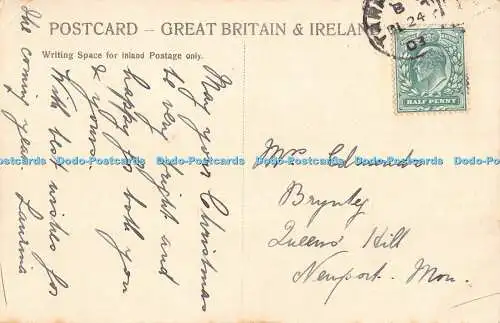 POSTCARD – GREAT BRITAIN & IRELAND
Writing Space for Inland Postage only.
May your Christmas
be very bright and
happy for both you
& yours.
With best wishes for
the coming year. Laurina
Mrs Edwards
Brynty
Queens Hill
Newport. Mon.
24
03
HALF PENNY
Dodo-Postcards Dodo-Postcards Dodo-Postcards Dodo-Postcards Dodo-Postcards Dodo-Postcards